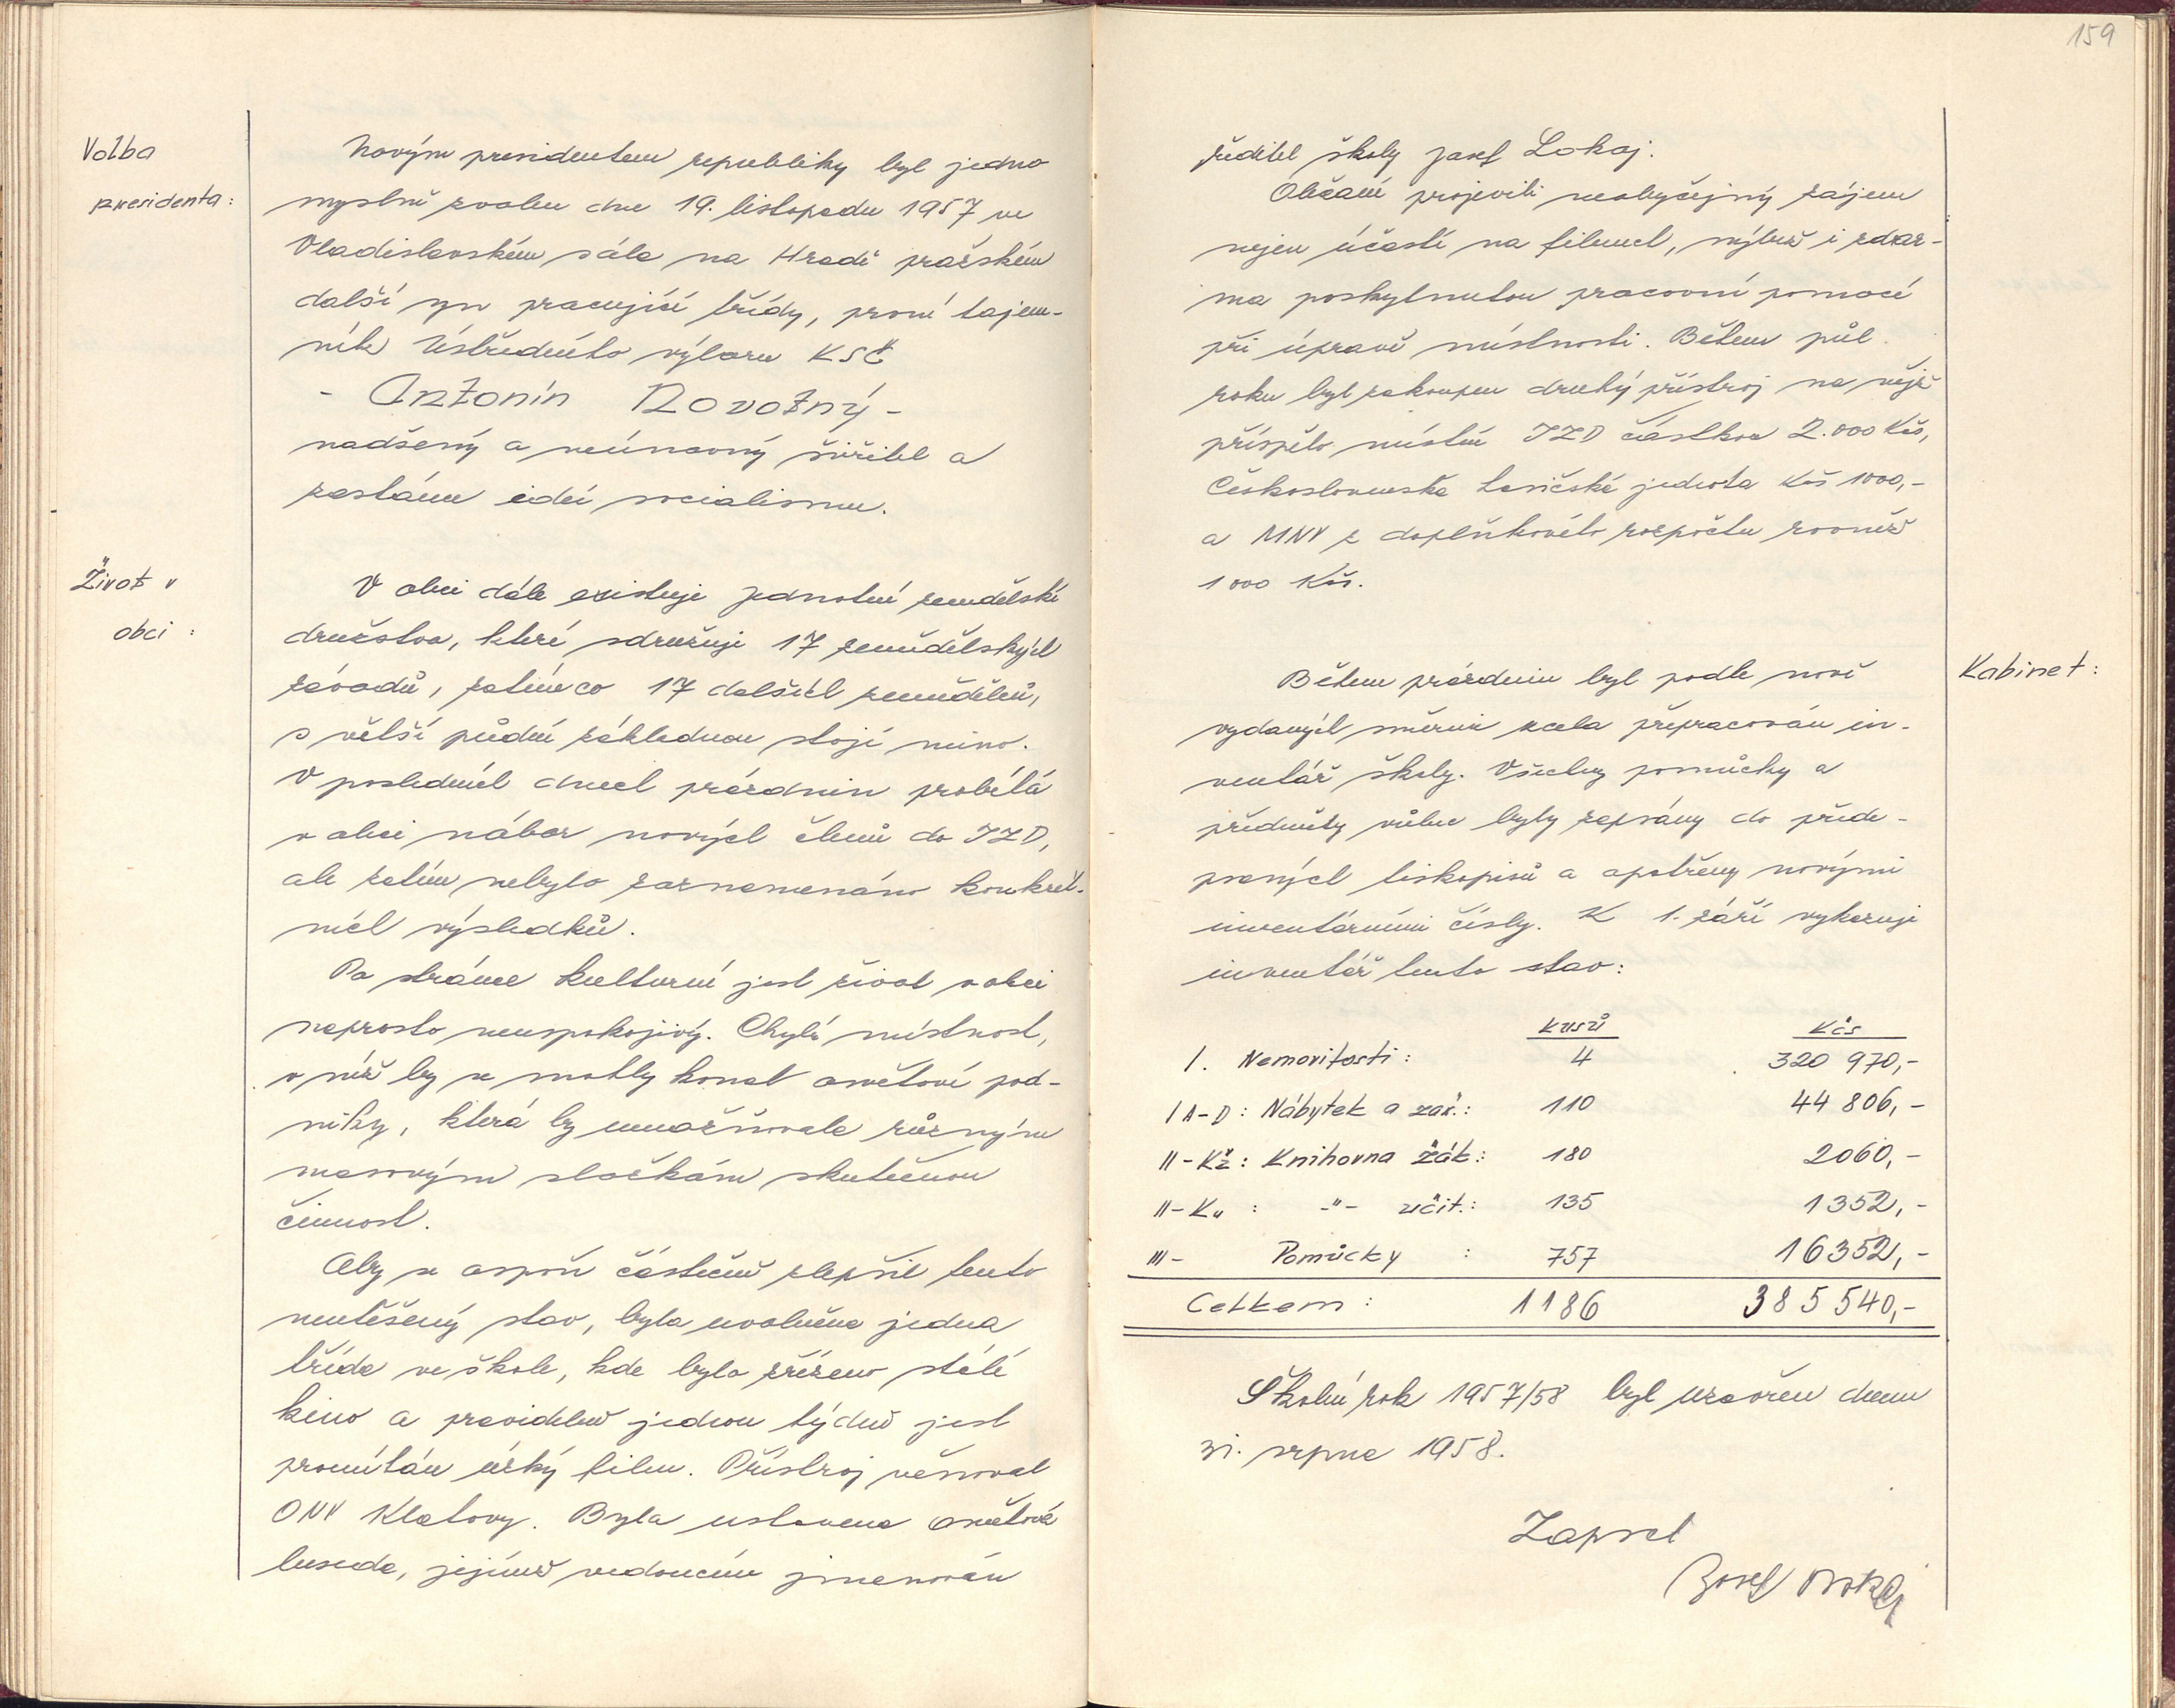 Volba
presidenta:
Novým presidentem republiky byl jedno
myslně zvolen dne 19. listopadu 1957 ve
Vladislavském sále na Hradě pražském
další syn pracující třídy, první tajem-
ník Ústředního výboru KSČ
- Antonín Novotný -
nadšený a neúnavný šiřitel a
zastánce ideí socialismu.
Život v
obci:
V obci dále existuje Jednotné zemědělské
družstvo, které sdružuje 17 zemědělských
závodů, zatím co 17 dalších zemědělců,
s větší půdní základnou stojí mimo.
V posledních dnech prázdnin probíhá
v obci nábor nových členů do JZD,
ale zatím nebylo zaznamenáno konkrét-
ních výsledků.
Po stránce kulturní jest život v obci
naprosto neuspokojivý. Chybí místnost,
v níž by se mohly konat osvětové pod-
niky, která by umožňovala různým
masovým složkám skutečnou
činnost.
Aby se aspoň částečně zlepšil tento
neutěšený stav, byla uvolněna jedna
třída ve škole, kde bylo zřízeno stálé
kino a pravidelně jednou týdně jest
promítán úzký film. Přístroj věnoval
ONV Klatovy. Byla ustavena osvětová
beseda, jejímž vedoucím jmenován
159
ředitel školy Josef Lokaj.
Občané projevili neobyčejný zájem
nejen účastí na filmech, nýbrž i zdar-
ma poskytnutou pracovní pomocí
při úpravě místnosti. Během půl
roku byl zakoupen druhý přístroj na nějž
příspělo místní JZD částkou 2.000 Kčs,
Československá hasičská jednota Kčs 1000,-
a MNV z doplňkového rozpočtu rovněž
1000 Kčs.
Kabinet:
Během prázdnin byl podle nově
vydaných směrnic zcela přepracován in-
ventář školy. Všechny pomůcky a
předměty vůbec byly zapsány do přede-
psaných tiskopisů a opatřeny novými
inventárními čísly. K 1. září vykazuje
inventář tento stav:
kusů Kčs
I. Nemovitosti: 4 320 970,-
I A-D: Nábytek a zař.: 110 44 806,-
II-Kž: Knihovna žák: 180 2060,-
II-Ku: -"- učit.: 135 1352,-
III- Pomůcky: 757 16352,-
Celkem: 1186 385 540,-
Školní rok 1957/58 byl uzavřen dnem
31. srpna 1958.
Zapsal
Josef Lokaj